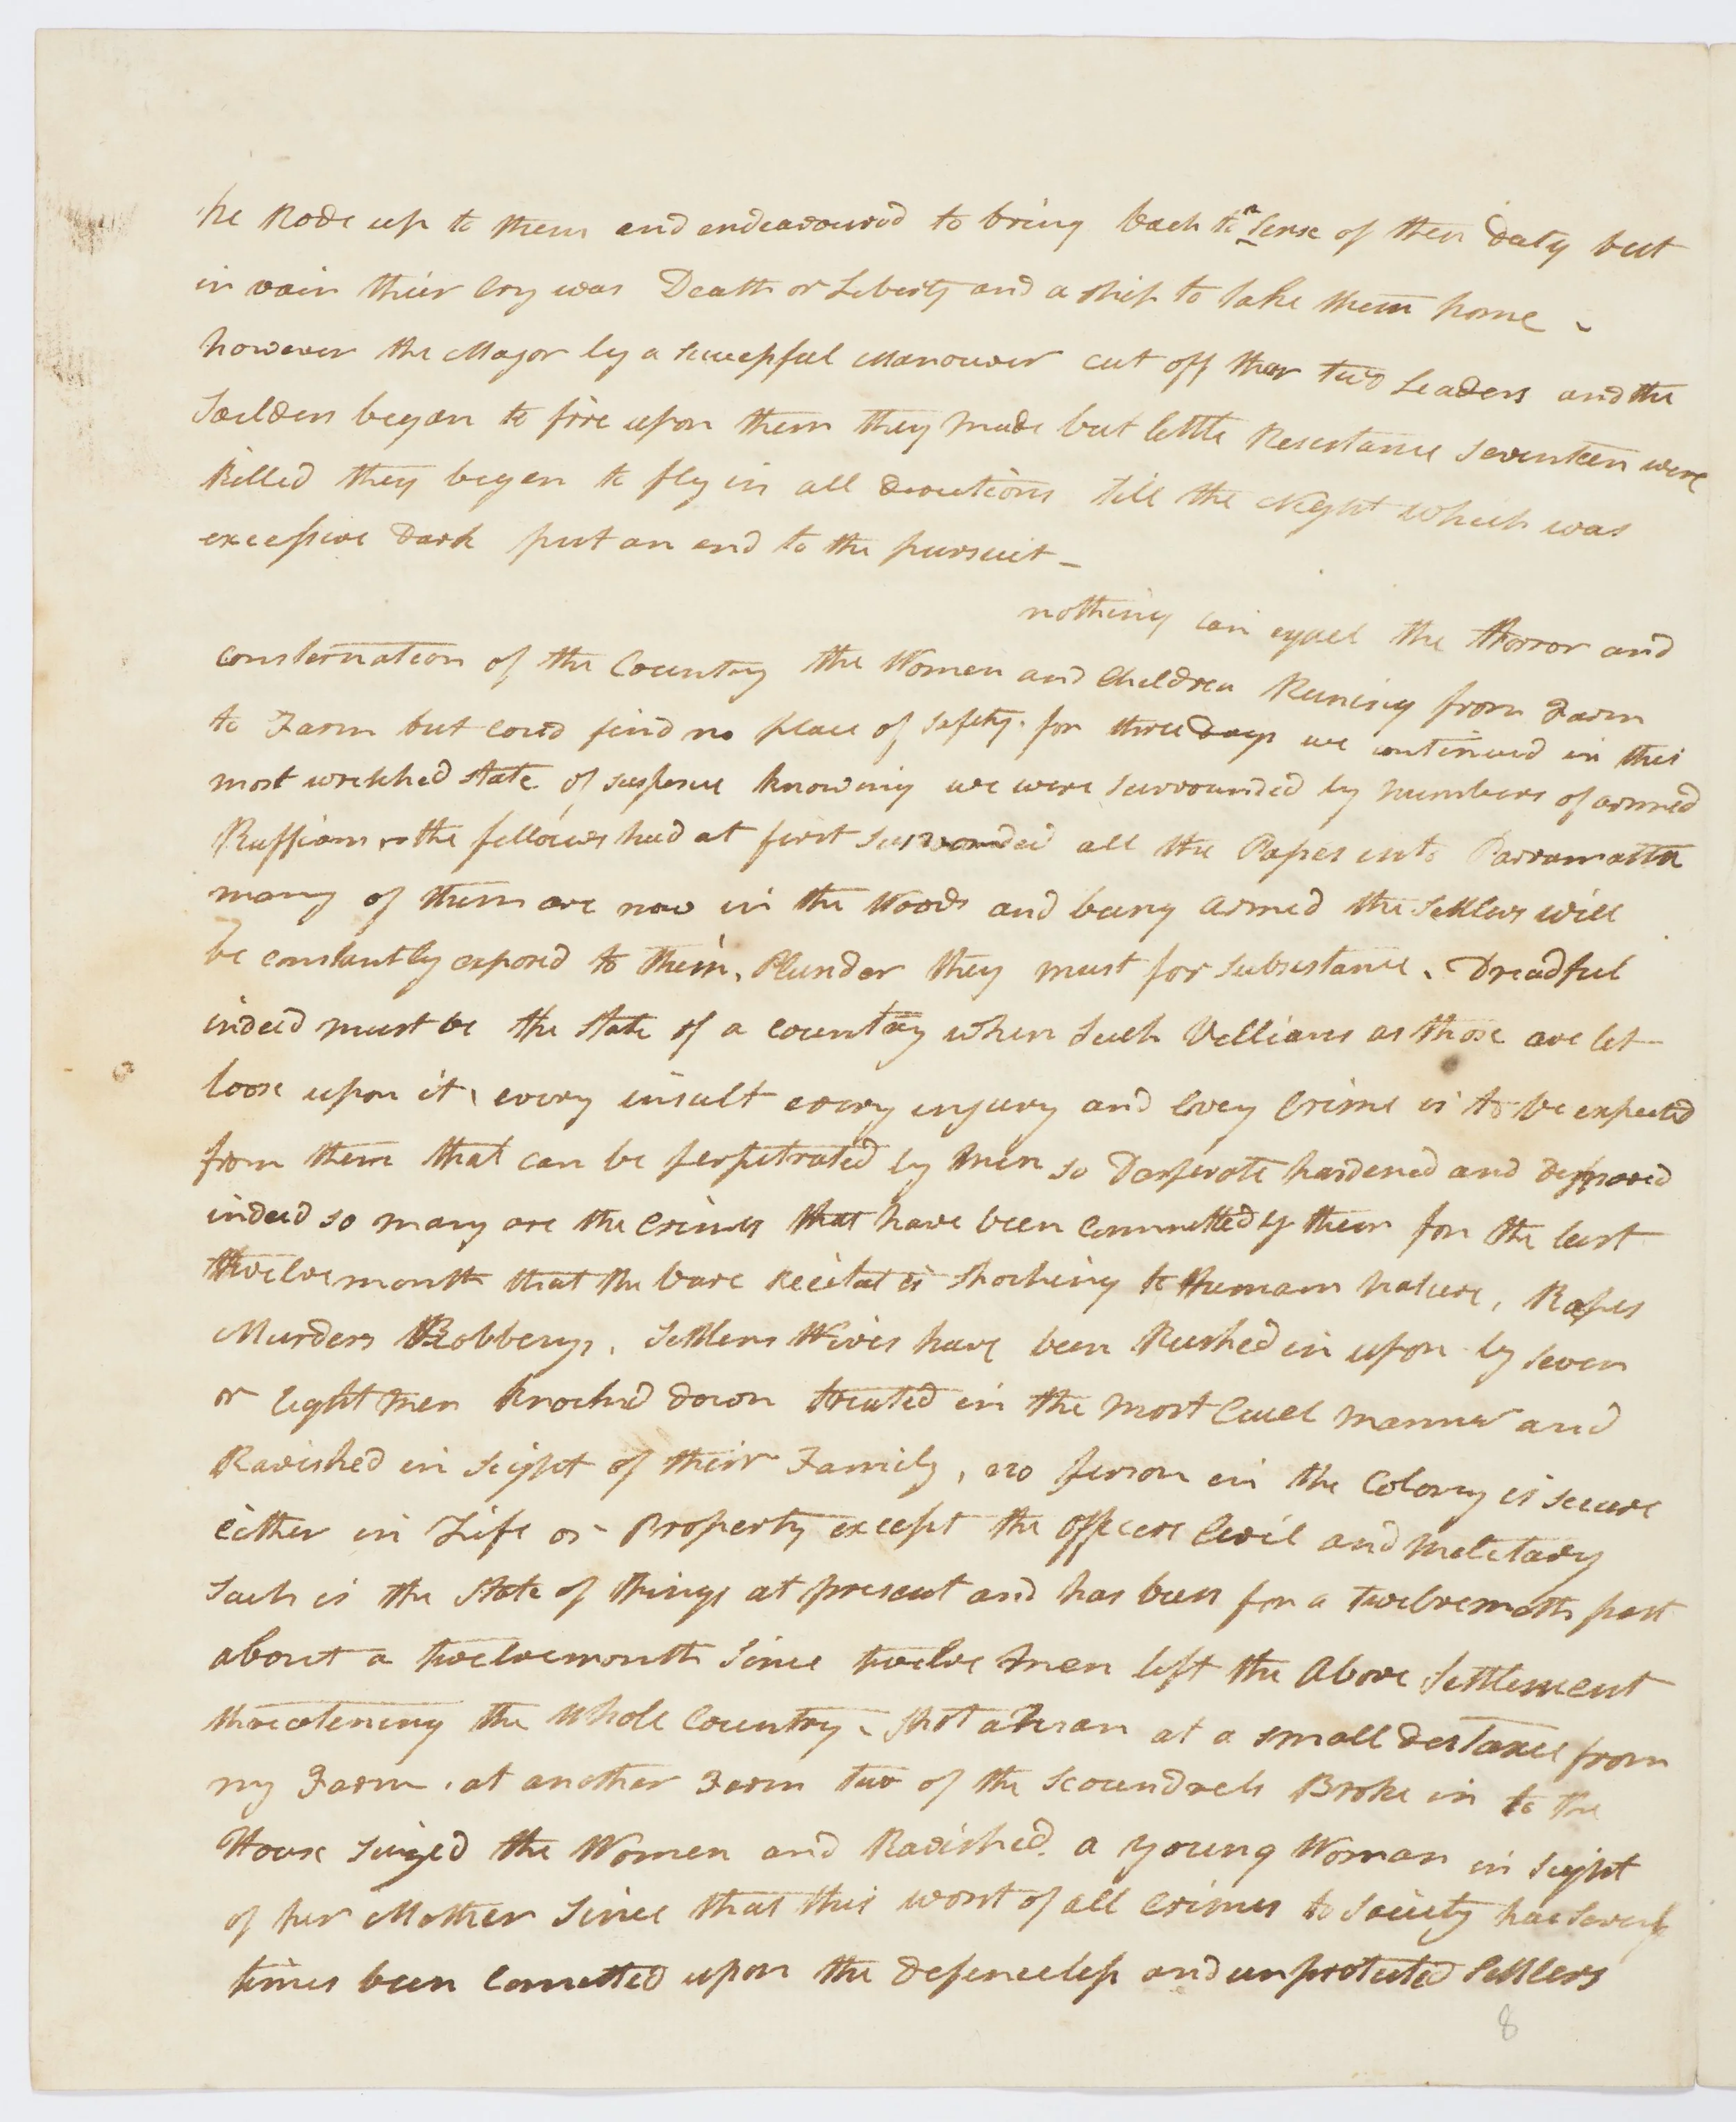 he Rode up to them and endeavoured to bring back to a Sense of their Duty but
in vain their Cry was Death or Liberty and a ship to take them home .
however the Major by a succepful Manouver cut off their two Leaders and the
Soilders began to fire upon them they made but little Resestance seventeen were
killed they began to fly in all directions till the Night which was
excepive Dark put an end to the pursuit -
nothing can equel the Horror and
consternation of the Country the Women and Children Runing from Farm
to Farm but coud find no place of safety. for three Days we continued in this
most wretched state of suspence knowing we were surrounded by numbers of armed
Ruffians the fellows had at first surrounded all the Papes into Parramatta
many of them are now in the Woods and being armed the Settlers will
be constantly exposed to them. Plunder they must for subsistance. Dreadful
indeed must be the state of a country when such Vellians as those are let
loose upon it, every insult every injury and Evey Crime is to be expected
from them that can be perpetrated by Men so Desperate hardened and depraved
indeed so many are the Crimes that have been Committed by them for the last
twelvemonth that the bare recital is shocking to Humam Nature, Rapes
Murders Robberys, Settlers Wives have been Rushed in upon by seven
or Eight Men knocked down treated in the most Cruel manner and
Ravished in sight of their Family, no person in the Colony is secure
either in Life or Property except the officers Civil and Meletary
Such is the State of things at present and has been for a twelvemoth past
about a twelvemonth since twelve Men left the above Settlement
threatening the whole Country. Shot a Man at a small Distance from
my Farm, at another Farm two of the Scoundrels Broke in to the
House Seized the Women and Ravished a young Woman in sight
of her Mother Since that this worst of all crimes to Society has
times been Cometted upon the defencelep and unprotected Settlers
8